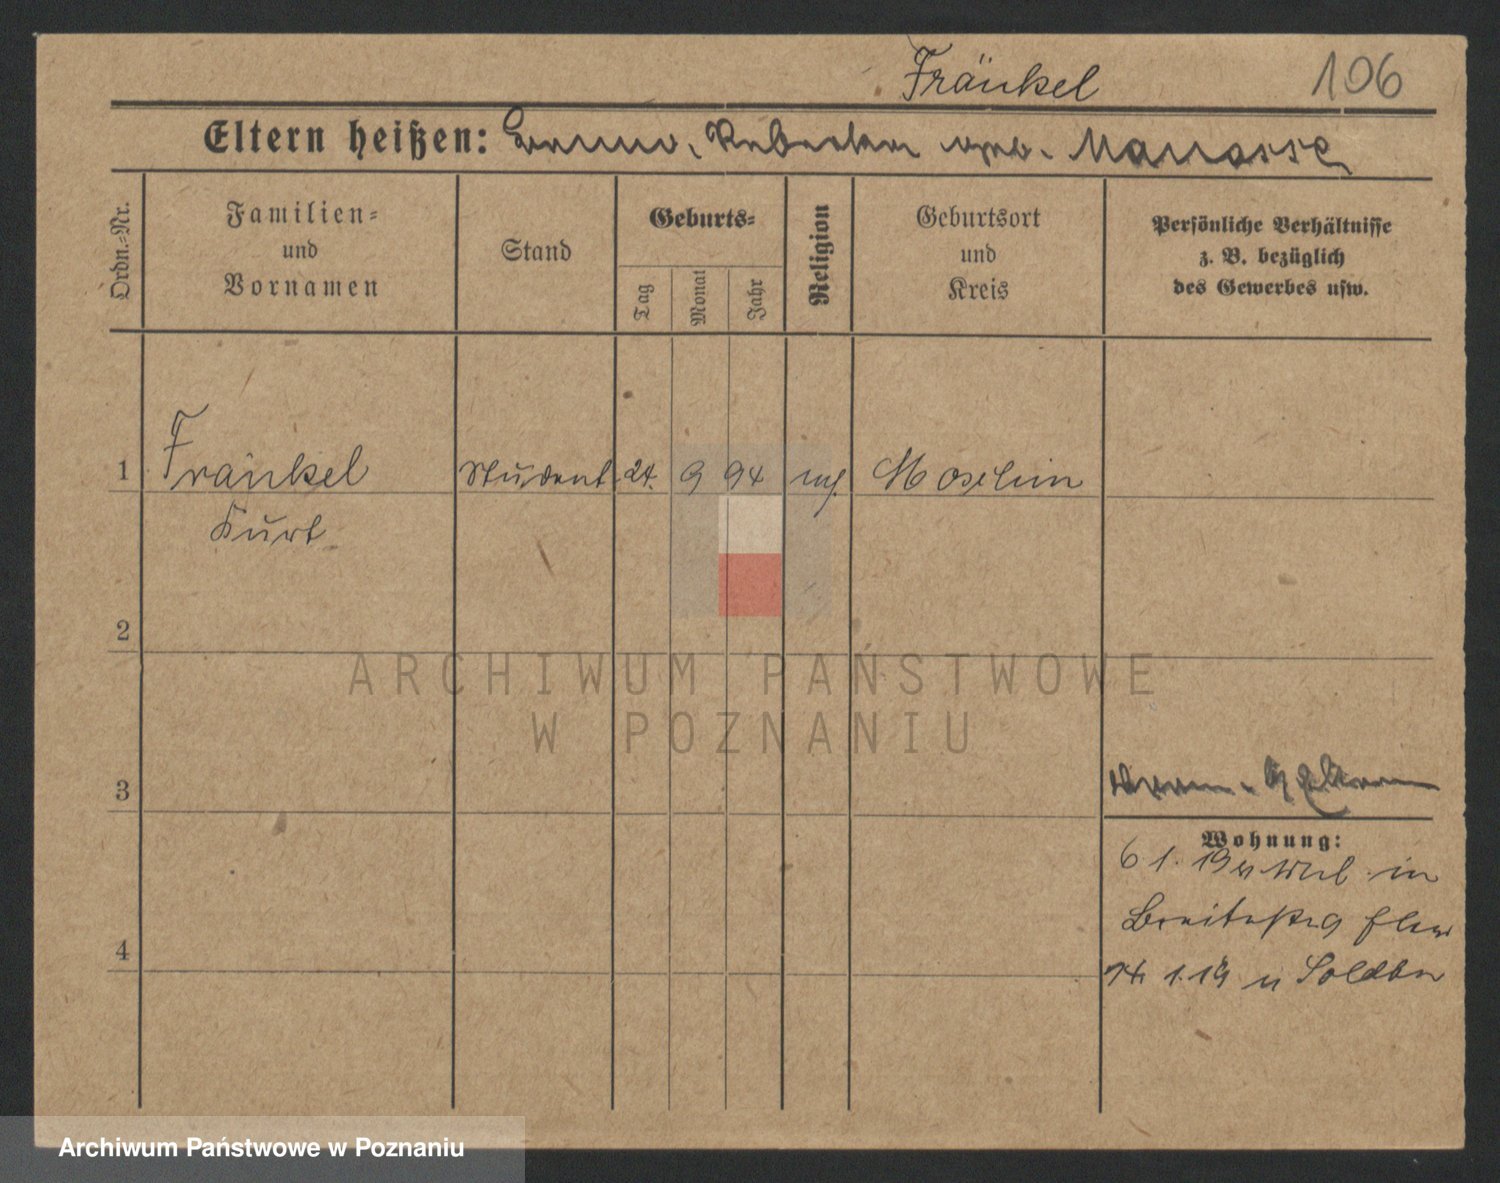 Fränkel
106
Eltern heißen: Rebecka geb. Manasse
Ordn.-Nr.
Familien-
und
Vornamen
Stand
Geburts-
Tag
Monat
Jahr
Religion
Geburtsort
und
Kreis
Persönliche Verhältnisse
z. B. bezüglich
des Gewerbes usw.
1 Fränkel Student 24. 9 94 Moschin
Kurt
2
3
Wohnung:
6 1. 19 in
Breitestr 9
4
1.19
ARCHIWUM PAŃSTWOWE
W POZNANIU
Archiwum Państwowe w Poznaniu